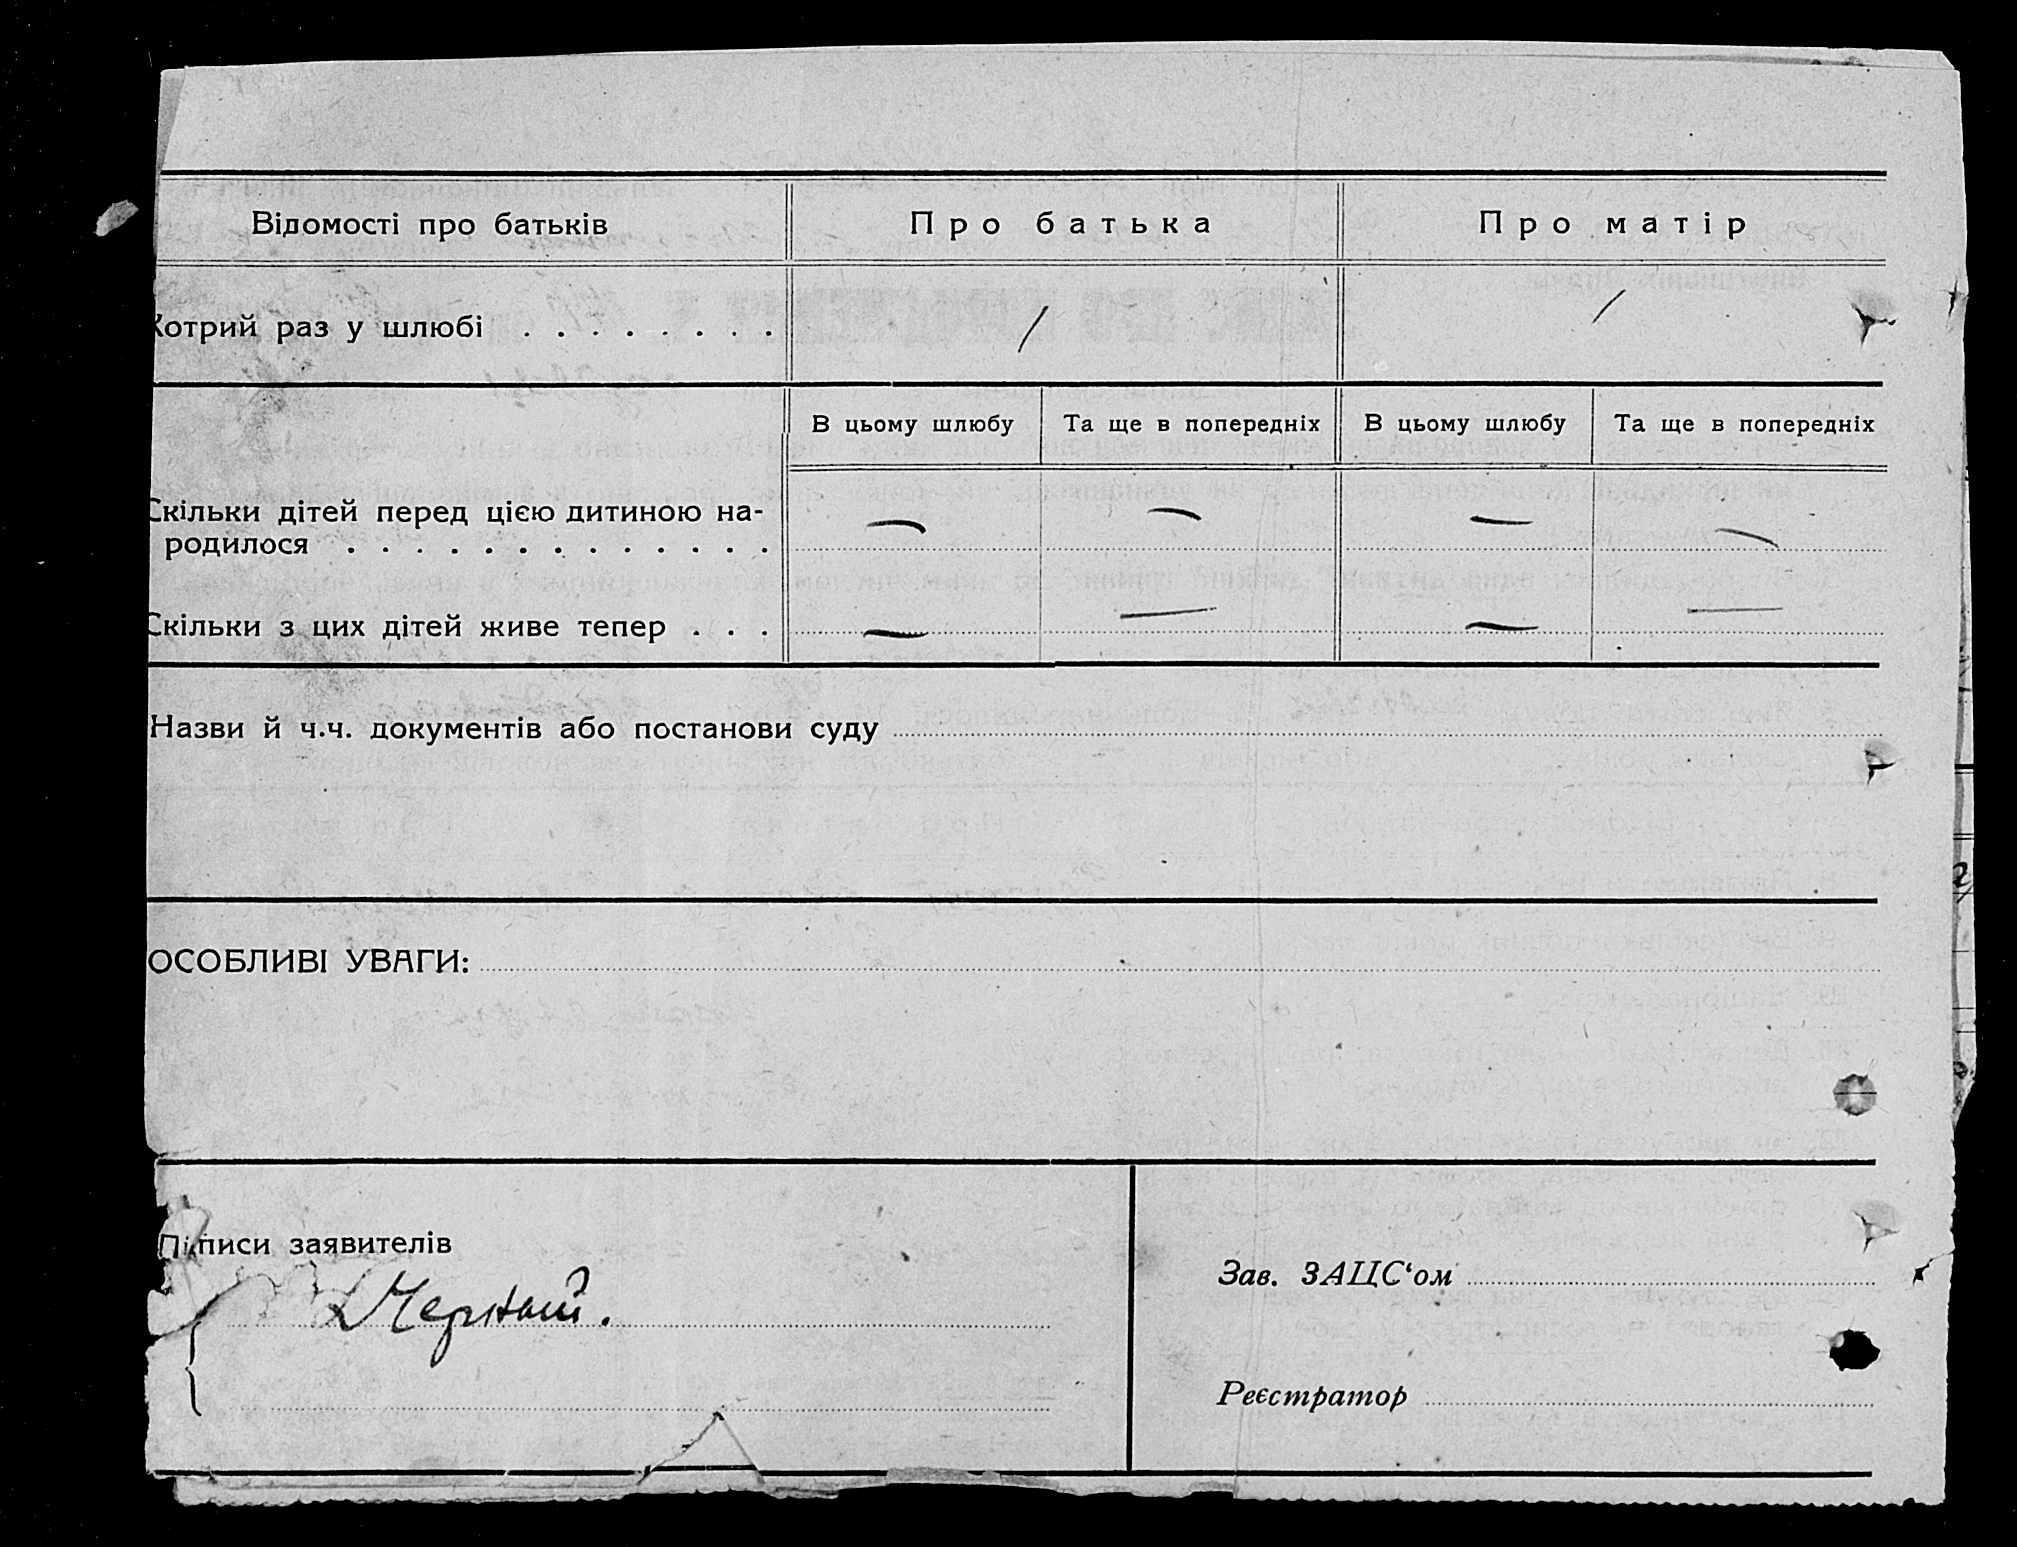 Відомості про батьків Про батька Про матір
Котрий раз у шлюбі . . . . . . . . / /
В цьому шлюбу Та ще в попередніх В цьому шлюбу Та ще в попередніх
Скільки дітей перед цією дитиною на-
родилося . . . . . . . . . . . . . — — — —
Скільки з цих дітей живе тепер . . . — — — —
Назви й ч.ч. документів або постанови суду
ОСОБЛИВІ УВАГИ:
Підписи заявителів
Зав. ЗАЦС‘ом
Реєстратор